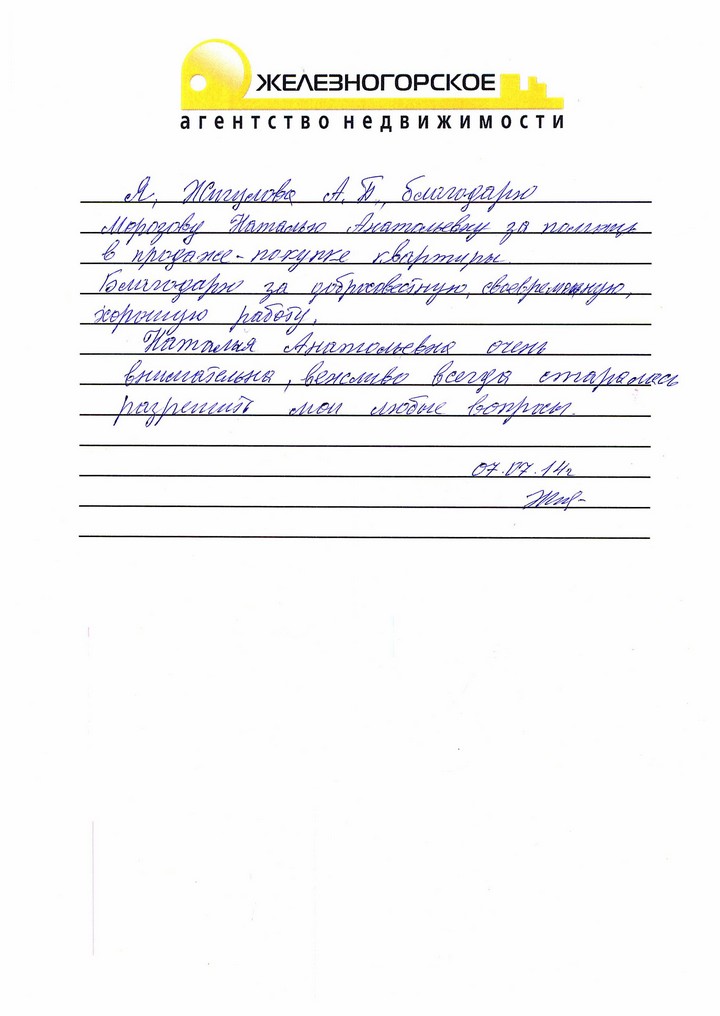 ЖЕЛЕЗНОГОРСКОЕ
агентство недвижимости
Я, Жигулова А.Б., благодарю
Морозову Наталью Анатольевну за помощь
в продаже-покупке квартиры.
Благодарю за добросовестную, своевременную,
хорошую работу.
Наталья Анатольевна очень
внимательна, вежливо всегда старалась
разрешить мои любые вопросы.
07.07.14г